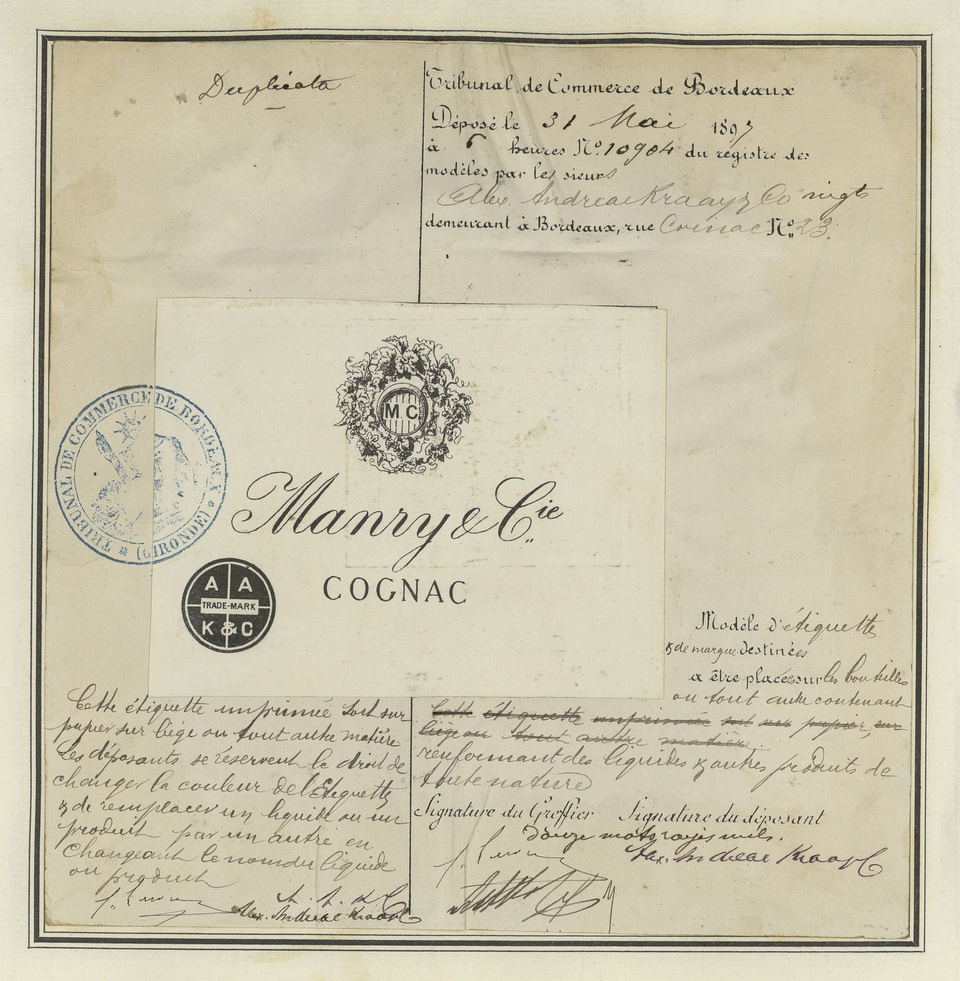 Duplicata
Tribunal de Commerce de Bordeaux
Déposé le 31 Mai 1897
à 6 heures No. 10904 du registre des
modèles par les sieurs
Alex. Andreae Kraay & Co
demeurant à Bordeaux, rue Cornac No. 23.
M C
TRIBUNAL DE COMMERCE DE BORDEAUX
(GIRONDE)
Manry & Cie
COGNAC
A A
TRADE-MARK
K & C
Modèle d'étiquette
& de marque destinées
à être placées sur les bouteilles
ou tout autre contenant
Cette étiquette imprimée soit sur papier, sur
liège ou tout autre matière
renfermant des liquides & autres produits de
toute nature
Cette étiquette imprimée soit sur
papier sur liège ou tout autre matière
Les déposants se réservent le droit de
changer la couleur de l'Etiquette
& de remplacer un liquide ou un
produit par un autre en
changeant le nom du liquide
ou produit
A. A. K & C
Alex. Andreae Kraay & C
Signature du Greffier
Signature du déposant
douze mots rayés nuls.
Alex. Andreae Kraay & C